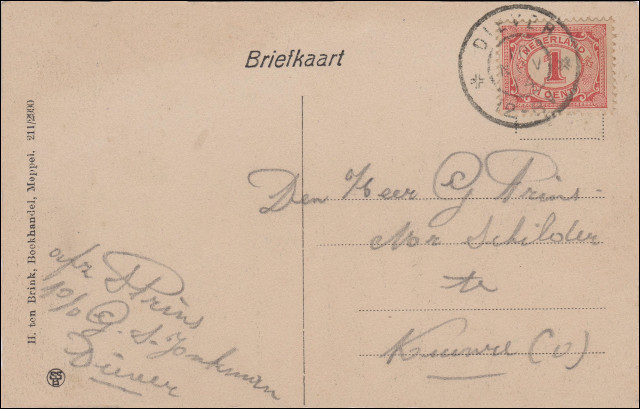 Briefkaart
DIEVER
NEDERLAND
1
CENT
H. ten Brink, Boekhandel, Meppel. 211/2990
Den Heer G Prins
Mr Schilder
te
Kuinre (O)
afz Prins
p/o G. S. Jonkman
Diever